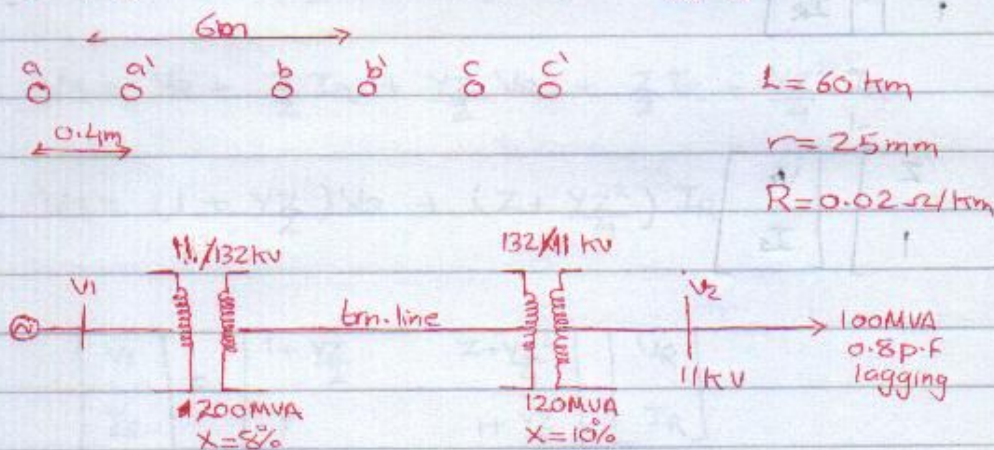 6m
a a' b b' c c'
L = 60 km
0.4m
r = 25mm
R = 0.02 Ω/km
11/132 kV
132/11 kV
V1
V2
trn-line
100MVA
0.8 p.f
lagging
11KV
200MVA
X = 8%
120MVA
X = 10%